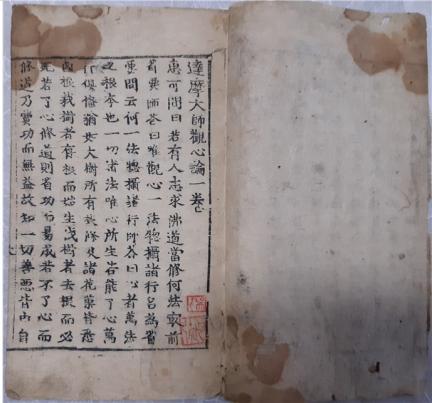 達摩大師觀心論一卷
惠可問曰若有人志求佛道當修何法寂前
要師答曰唯觀心一法惣攝諸行名為省
要問云何一法惣攝諸行師答曰心者萬法
之根本也一切諸法唯心所生若能了心萬
行俱備猶大樹所有枝條及諸花菓皆悉
因根栽樹者存根而始生伐樹者去根而必
死若了心修道則省功而易成若不了心而
修道乃費功而無益故知一切善惡皆由自